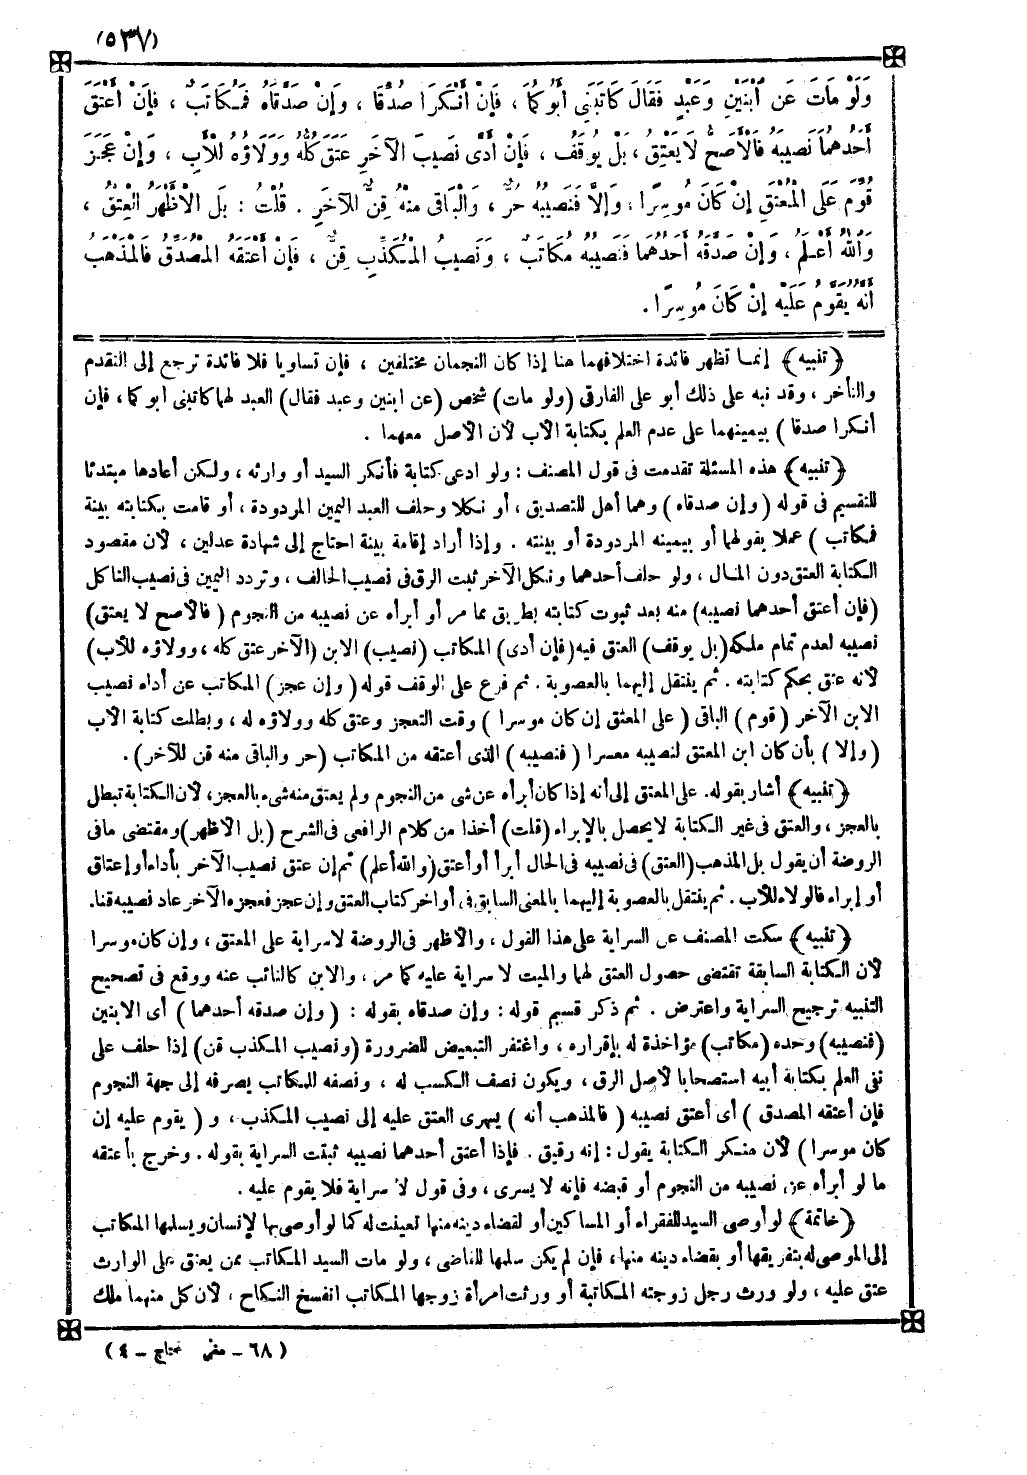 (٥٣٧)
وَلَوْ مَاتَ عَنِ ابْنَيْنِ وَعَبْدٍ فَقَالَ كَاتَبَنِي أَبُوكُمَا ، فَإِنْ أَنْكَرَا صُدِّقَا ، وَإِنْ صَدَّقَاهُ فَمُكَاتَبٌ ، فَإِنْ أَعْتَقَ
أَحَدُهُمَا نَصِيبَهُ فَالْأَصَحُّ لَا يَعْتِقُ ، بَلْ يُوقَفُ ، فَإِنْ أَدَّى نَصِيبَ الْآخَرِ عَتَقَ كُلُّهُ وَوَلَاؤُهُ لِلْأَبِ ، وَإِنْ عَجَزَ
قُوِّمَ عَلَى الْمُعْتِقِ إِنْ كَانَ مُوسِرًا ، وَإِلَّا فَنَصِيبُهُ حُرٌّ ، وَالْبَاقِي مِنْهُ قِنٌّ لِلْآخَرِ . قُلْتُ : بَلِ الْأَظْهَرُ الْعِتْقُ ،
وَاللهُ أَعْلَمُ ، وَإِنْ صَدَّقَهُ أَحَدُهُمَا فَنَصِيبُهُ مُكَاتَبٌ ، وَنَصِيبُ الْمُكَذِّبِ قِنٌّ ، فَإِنْ أَعْتَقَهُ الْمُصَدِّقُ فَالْمَذْهَبُ
أَنَّهُ يُقَوَّمُ عَلَيْهِ إِنْ كَانَ مُوسِرًا .
﴿ تنبيه ﴾ إنما تظهر فائدة اختلافهما هنا إذا كان النجمان مختلفين ، فإن تساويا فلا فائدة ترجع إلى التقدم
والتأخر ، وقد نبه على ذلك أبو على الفارقى (ولو مات) شخص (عن ابنين وعبد فقال) العبد لهما كاتبنى أبوكما ، فإن
أنكرا صدقا ) بيمينهما على عدم العلم بكتابة الأب لأن الأصل معهما .
﴿ تنبيه ﴾ هذه المسئلة تقدمت فى قول المصنف : ولو ادعى كتابة فأنكر السيد أو وارثه ، ولكن أعادها مبتدئا
للتقسيم فى قوله ( وإن صدقاه ) وهما أهل للتصديق ، أو نكلا وحلف العبد اليمين المردودة ، أو قامت بكتابته بينة
فمكاتب ) عملا بقولهما أو بيمينه المردودة أو بينته . وإذا أراد إقامة بينة احتاج إلى شهادة عدلين ، لأن مقصود
الكتابة العتق دون المال ، ولو حلف أحدهما ونكل الآخر ثبت الرق فى نصيب الحالف ، وتردد اليمين فى نصيب الناكل
(فإن أعتق أحدهما نصيبه) منه بعد ثبوت كتابته بطريق مما مر أو أبرأه عن نصيبه من النجوم ( فالأصح لا يعتق)
نصيبه لعدم تمام ملكه (بل يوقف) العتق فيه (فإن أدى) المكاتب (نصيب) الابن (الآخر عتق كله ، وولاؤه للأب)
لأنه عتق بحكم كتابته . ثم ينتقل إليهما بالعصوبة . ثم فرع على الوقف قوله ( وإن عجز) المكاتب عن أداء نصيب
الابن الآخر ( قوم ) الباقى ( على المعتق إن كان موسرا ) وقت التعجز وعتق كله وولاؤه له ، وبطلت كتابة الأب
(وإلا ) بأن كان ابن المعتق لنصيبه معسرا ( فنصيبه ) الذى أعتقه من المكاتب (حر والباقى منه قن للآخر) .
﴿ تنبيه ﴾ أشار بقوله. على المعتق إلى أنه إذا كان أبرأه عن شى من النجوم ولم يعتق منه شىء بالعجز، لأن الكتابة تبطل
بالعجز ، والعتق فى غير الكتابة لا يحصل بالإبراء (قلت) أخذا من كلام الرافعى فى الشرح (بل الأظهر) ومقتضى ما فى
الروضة أن يقول بل المذهب (العتق) فى نصيبه فى الحال أبرأ أو أعتق (والله أعلم) ثم إن عتق نصيب الآخر بأداء أو إعتاق
أو إبراء فالولاء للأب . ثم ينتقل بالعصوبة إليهما بالمعنى السابق فى أواخر كتاب العتق وإن عجز فعجزه الآخر عاد نصيبه قنا.
﴿ تنبيه ﴾ سكت المصنف عن السراية على هذا القول ، والأظهر فى الروضة لا سراية على المعتق ، وإن كان موسرا
لأن الكتابة السابقة تقتضى حصول العتق لهما والميت لا سراية عليه كما مر ، والابن كالنائب عنه ووقع فى تصحيح
التنبيه ترجيح السراية واعترض . ثم ذكر قسيم قوله : وإن صدقاه بقوله : ( وإن صدقه أحدهما ) أى الابنين
(فنصيبه) وحده (مكاتب) مؤاخذة له بإقراره ، واغتفر التبعيض للضرورة (ونصيب المكذب قن) إذا حلف على
نفى العلم بكتابة أبيه استصحابا لأصل الرق ، ويكون نصف الكسب له ، ونصفه للمكاتب يصرفه إلى جهة النجوم
فإن أعتقه المصدق ) أى أعتق نصيبه ( فالمذهب أنه ) يسرى العتق عليه إلى نصيب المكذب ، و ( يقوم عليه إن
كان موسرا ) لأن منكر الكتابة يقول : إنه رقيق . فإذا أعتق أحدهما نصيبه ثبتت السراية بقوله . وخرج بأعتقه
ما لو أبرأه عن نصيبه من النجوم أو قبضه فإنه لا يسرى ، وفى قول لا سراية فلا يقوم عليه .
﴿ خاتمة ﴾ لو أوصى السيد للفقراء أو المساكين أو لقضاء دينه منها تعينت له كما لو أوصى بها لإنسان ويسلمها المكاتب
إلى الموصى له بتفريقها أو بقضاء دينه منها، فإن لم يكن سلمها للقاضى ، ولو مات السيد المكاتب ممن يعتق على الوارث
عتق عليه ، ولو ورث رجل زوجته المكاتبة أو ورثت امرأة زوجها المكاتب انفسخ النكاح ، لأن كل منهما ملك
( ٦٨ - مغنى محتاج - ٤ )